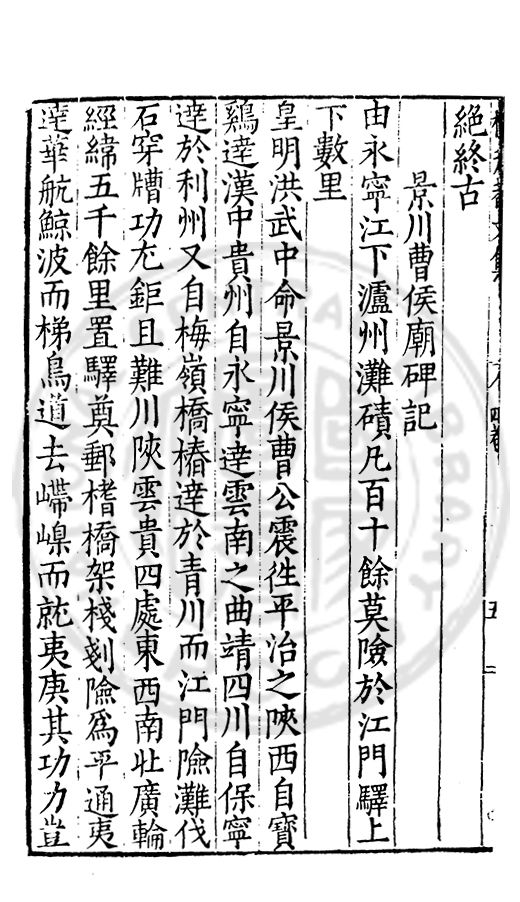 絶終古
景川曹侯廟碑記
由永寧江下瀘州灘磧凡百十餘莫險於江門驛上
下數里
皇明洪武中命景川侯曹公震徃平治之陜西自寶
鷄達漢中貴州自永寧達雲南之曲靖四川自保寧
達於利州又自梅嶺橋樁達於青川而江門險灘伐
石穿牘功尤鉅且難川陜雲貴四處東西南北廣輪
經緯五千餘里置驛奠郵楮橋架棧剗險爲平通夷
達華航鯨波而梯鳥道去㠐嵲而就夷庚其功力豈